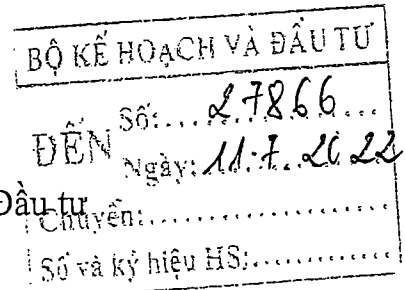 BỘ KẾ HOẠCH VÀ ĐẦU TƯ
ĐẾN
Số:....27866...
Ngày:11.7.2022
Đầu tư
Chuyển:....................
Số và ký hiệu HS:.............